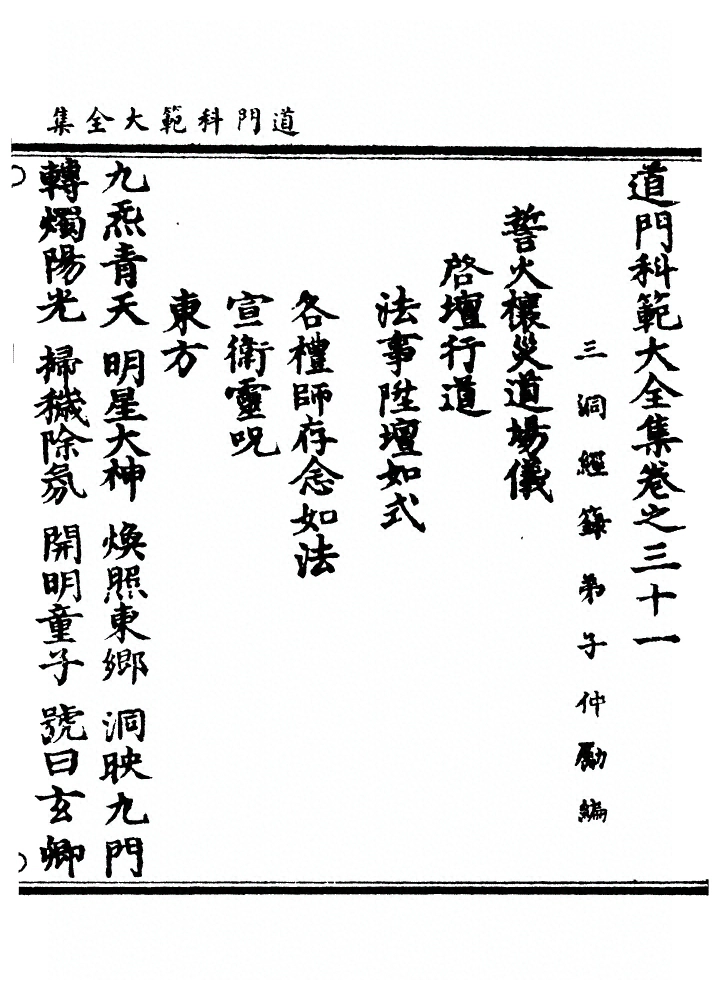 道門科範大全集
道門科範大全集卷之三十一
三洞經籙弟子仲勵編
誓火禳災道場儀
啓壇行道
法事陞壇如式
各禮師存念如法
宣衛靈呪
東方
九炁青天 明星大神 煥照東鄉 洞映九門
轉燭陽光 掃穢除氛 開明童子 號曰玄卿